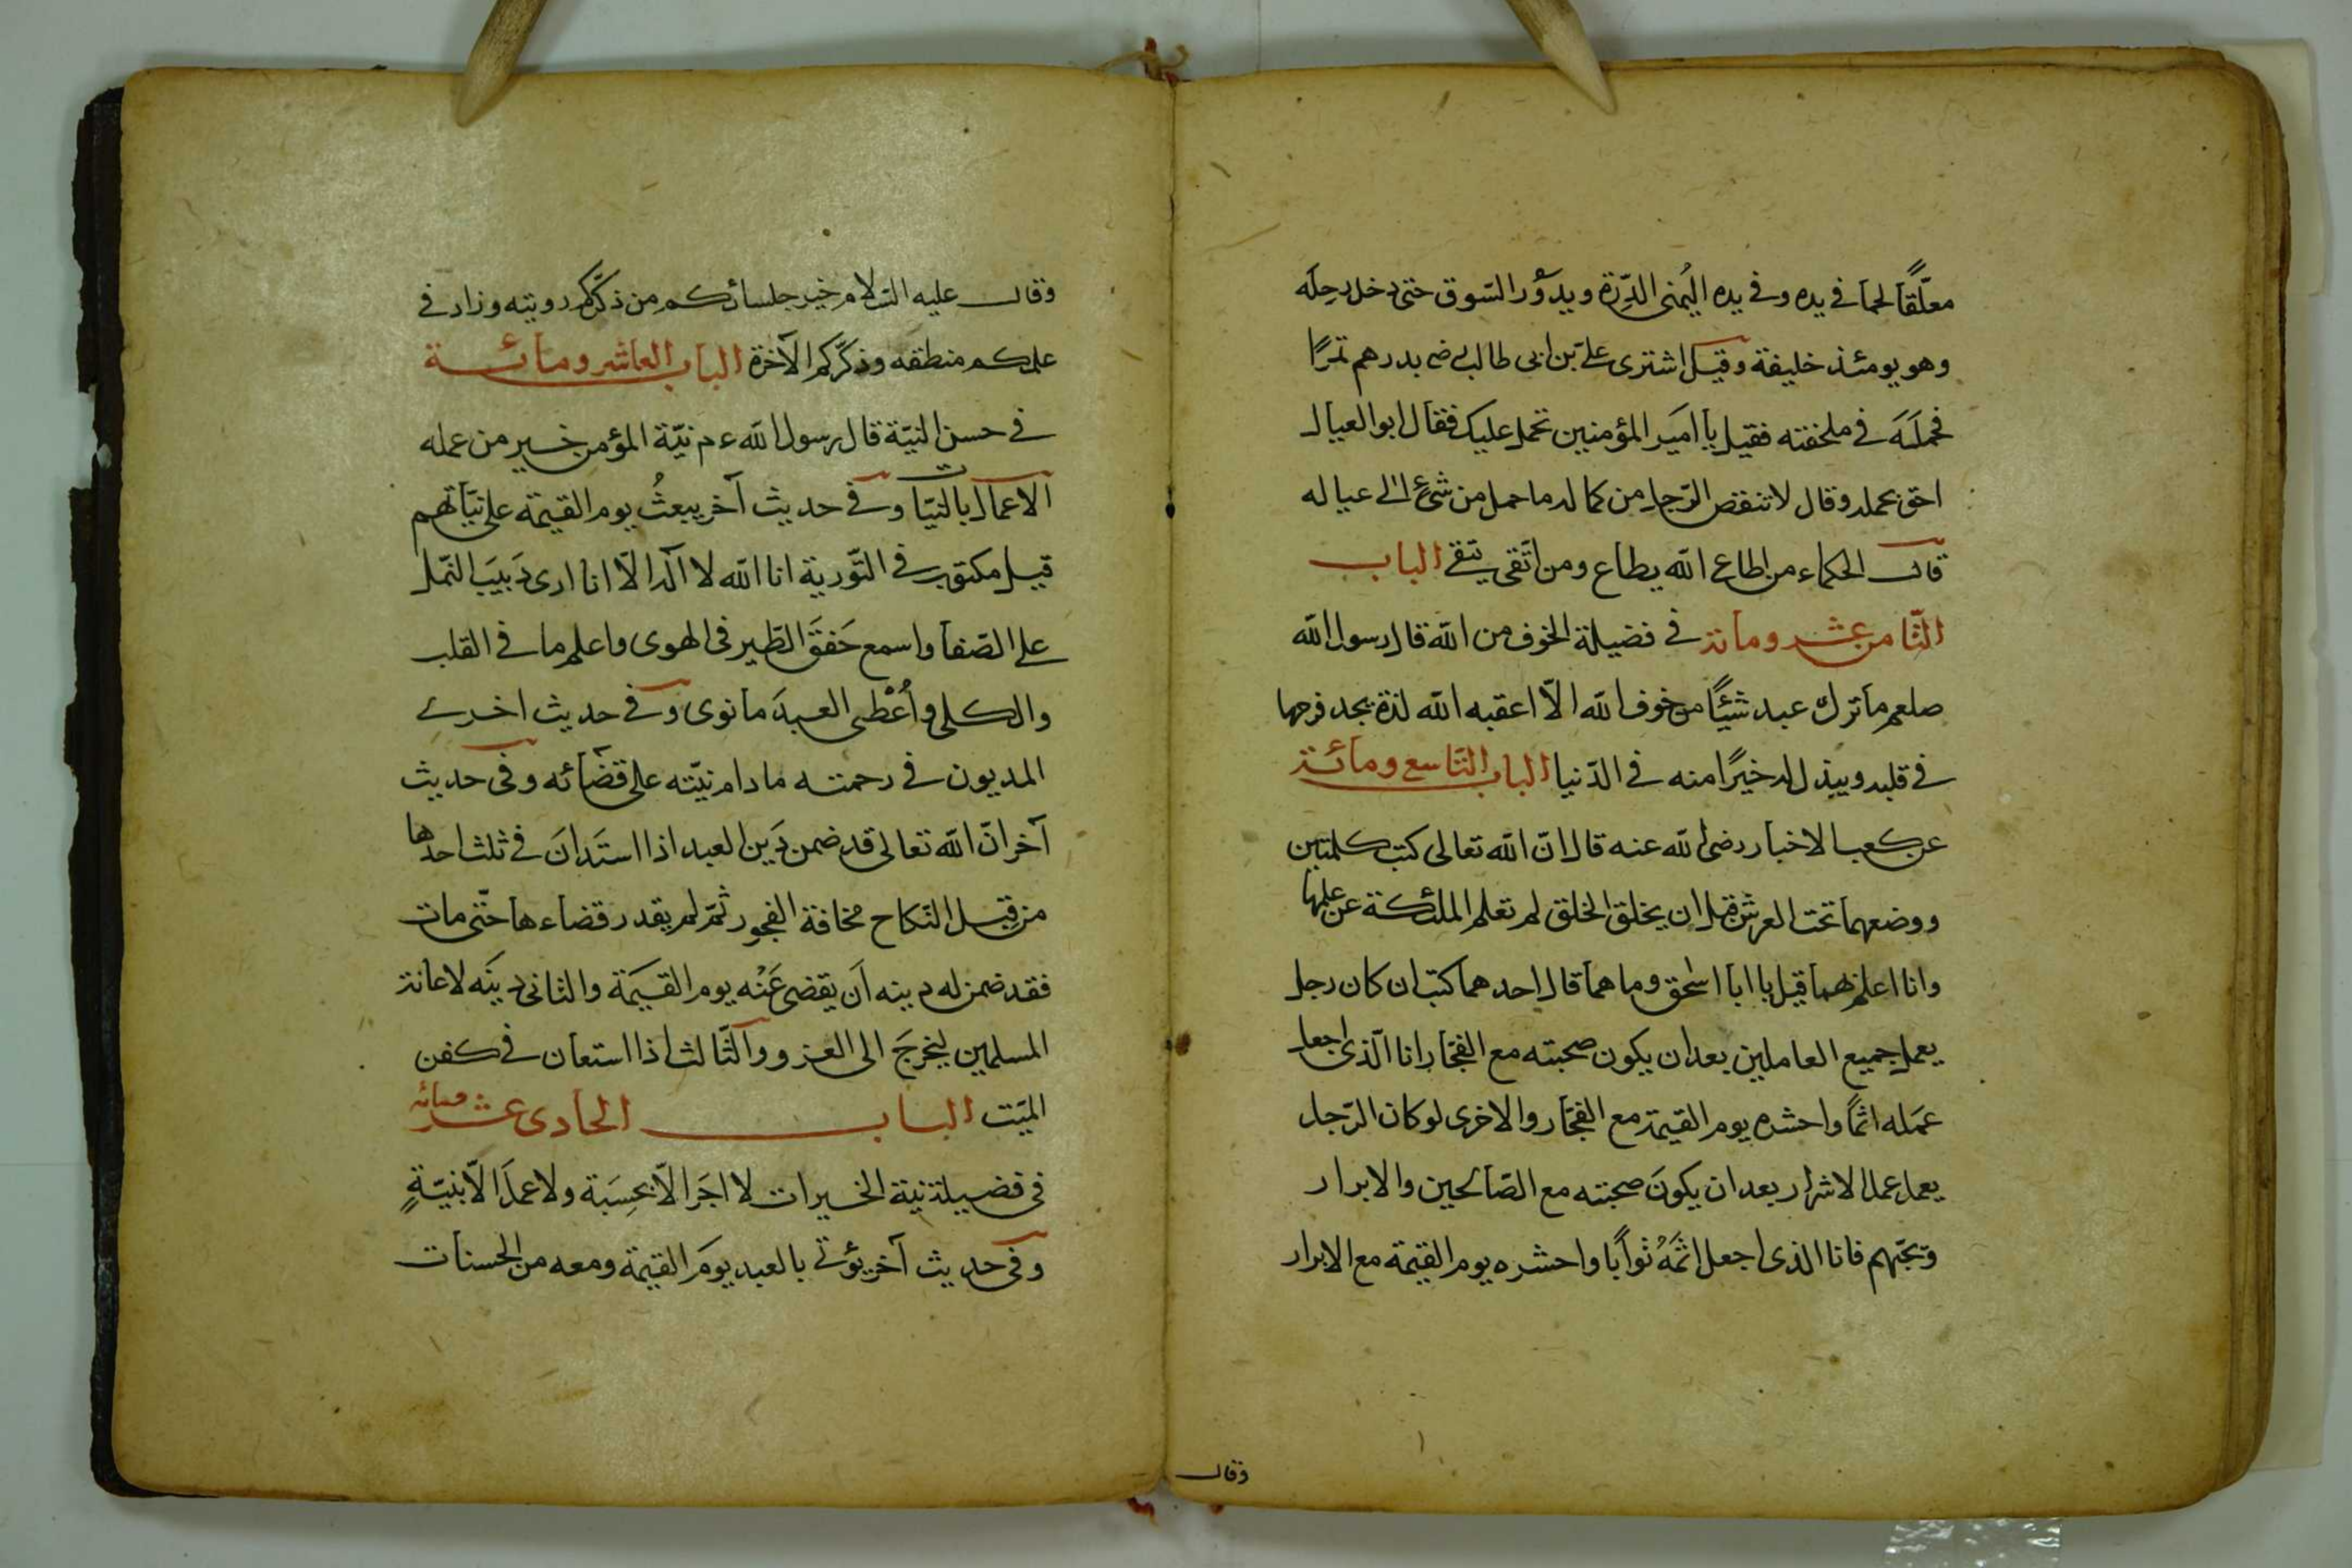 معلّقًا لحما في يده وفي يده اليُمنى الدِّرّة ويدوُر السّوق حتى دخل رحله
وهو يومئذ خليفة وقيل اشترى علىّ بن ابى طالب رضـ بدرهم تمرًا
فحملَه في ملحفته فقيل يا اميَر المؤمنين تحمل عليك فقال ابو العيال
احق بحمله وقال لا تنقص الرّجل من كماله ما حمل من شئ الى عياله
قال الحكماء من اطاع الله يطاع ومن اتّقى يتقى الباب
الثّامن عشر ومائة في فضيلة الخوف من الله قال رسول الله
صلعم ما ترك عبد شيئًا من خوف الله الّا اعقبه الله لذة يجد فرحها
في قلبه ويبذل له خيرًا منه في الدّنيا الباب التّاسع ومائة
عن كعب الاخبار رضى الله عنه قال انّ الله تعالى كتب كلمتين
ووضعهما تحت العرش قبل ان يخلق الخلق لم تعلم الملئكة عن علمها
وانا اعلم بهما قيل يا ابا اسحق وما هما قال احدهما كتب ان كان رجل
يعمل جميع العاملين بعد ان يكون صحبته مع الفجّار انا الّذى اجعل
عمَله اثمًا واحشره يوم القيمة مع الفجّار والاخرى لو كان الرّجل
يعمل عمل الاشرار بعد ان يكونَ صحبته مع الصّالحين والابرار
وبحبّهم فانا الذى اجعل اثمَهُ ثوابًا واحشره يوم القيمة مع الابرار
وقال
وقال عليه السّلام خير جلسائكم من ذكّركم رويته وزاد في
علمكم منطقه وذكّركم الآخرة الباب العاشر ومائة
في حسن النيّة قال رسول الله ء م نيّة المؤمن خير من عمله
الاعمال بالنيّات وفي حديث آخر يبعثُ يوم القيمة على نيّاتهم
قيل مكتوب في التّورية انا الله لا اله الّا انا ارى دَبيبَ النّمل
على الصّفا واسمع خَفقَ الطّير في الهوى واعلم ما في القلب
والكلى وأُعْطى العبدَ ما نوى وفي حديث اخرى
المديون في رحمته ما دام نيّته على قضائه وفي حديث
آخر انّ الله تعالى قد ضمن دَين العبد اذا استَدانَ في ثلث احدها
من قِبل النّكاح مخافة الفجور ثمّ لم يقدر قضاءها حتّى مات
فقد ضمن له دينه اَن يقضى عَنْه يوم القيَمة والثانى دينَه لاعانة
المسلمين ليخرجَ الى الغزو والثّالث اذا استعان في كفن
الميّت الباب الحادى عشر ومائه
في فضيلة نية الخيرات لا اجَر الّا بحِسَبة ولا عملَ الّا بنيّةٍ
وفي حديث آخر يؤتى بالعبد يومَ القيمة ومعه من الحسنات